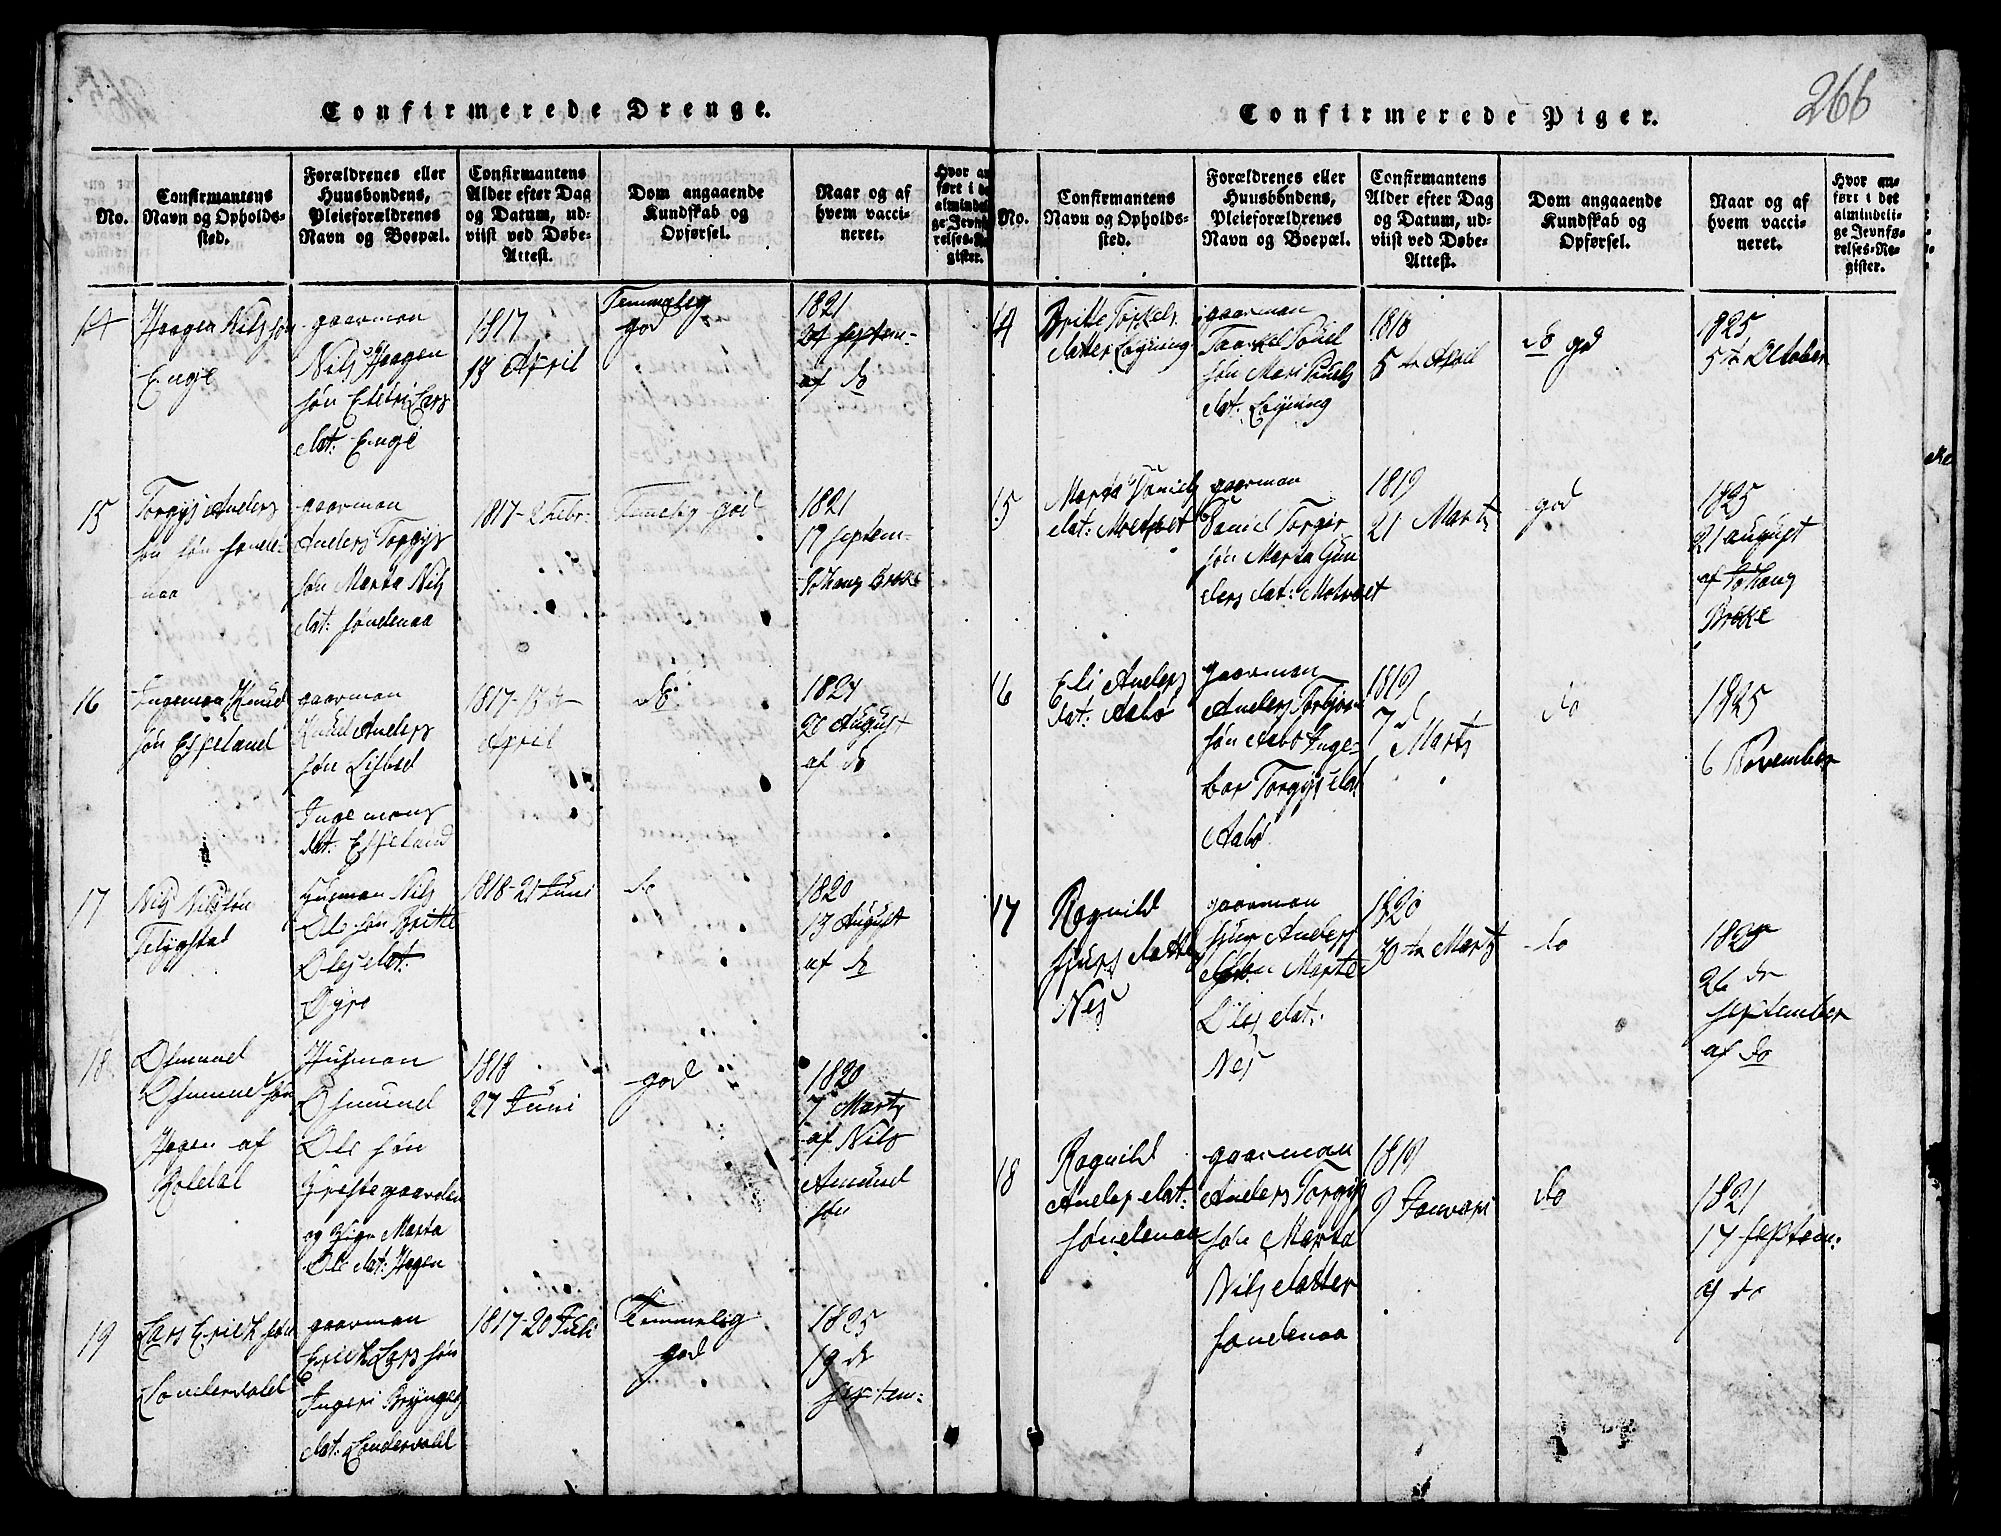 266
Confirmerede Drenge.
No.
Confirmantens
Navn og Opholds-
sted.
Forældrenes eller
Huusbondens,
Pleieforældrenes
Navn og Boepæl.
Confirmantens
Alder efter Dag
og Datum, ud-
viist ved Døbe-
Attest.
Dom angaaende
Kundskab og
Opførsel.
Naar og af
hvem vacci-
neret.
Hvor an
ført i de
almindel
ge Jevnf
relses-Re
gister.
14
Haagen Nilssøn
Enge
gaarman
Nils Haagen
søn Eletri Lars
dat: Enge
1817
13 April
Temmelig
god
1821
24 septem-
af do
15
Torgys Anders
søn sønde-
naa
gaarman
Anders Torgys
søn Marta Nils
dat: søndenaa
1817-2 Febr-
god
1821
17 septem-
16
Ingeman Knud
søn Espeland
gaarman
Knud Anders
søn Lisbed
Ingemans
dat: Espeland
1817-13 de
April
do
1821
20 August
af do
17
Nils Nilssøn
husman Nils
Ole søn Britte
Oles dat:
1818-21 Juni
do
1820
13 August
af do
18
Osmund
Osmund søn
Hagen af
Roldal
Husman
Osmund
Ole søn
Prestegaarden
og Marta
Ole dat: Hagen
1818
27 Juni
god
1820
7 Marts
af Nils
Amund
søn
19
Lars Erick søn
Sandervold
gaarman
Erick Lars søn
Ingeri Brynjels
dat: Sandervold
1817-20 Juli
Temmelig
god
1825
19 de
septem:
Confirmerede Piger.
No.
Confirmantens
Navn og Opholds-
sted.
Forældrenes eller
Huusbondens,
Pleieforældrenes
Navn og Boepæl.
Confirmantens
Alder efter Dag
og Datum, ud-
viist ved Døbe-
Attest.
Dom angaaende
Kundskab og
Opførsel.
Naar og af
hvem vacci-
neret.
Hvor an-
ført i det
almindeli-
ge Jevnfø-
relses-Re-
gister.
14
Britte Torkels
datter Løyning
gaarman
Taarkel Poul
søn Mari Pouels
dat: Løyning
1818
5 te April
do gd
1825
5 te October
15
Marta Daniels
dat: Moetvet
gaarman
Daniel Torgier
søn Marta Gun
ders dat: Motvoet
1819
21 Marts
god
1825
21 august
af Johans
Brække
16
Eli Anders
dat: Aabø
gaarman
Anders Torbjørn
søn Aabø Inge-
bor Torgys dat
Aabø
1819
7 d
Marts
do
1825
6 November
17
Ragnild
sjurs datter
Nes
gaarman
sjur Anders
søn Marte
Oles dat:
Nes
1820
30 te Marts
do
26 de
september
af do
18
Ragnild
Anders dat:
søndenaa
gaarman
Anders Torgys
søn Marta
Nils datter
sondenaa
1819
9 Janvari
do
1821
17 septem:
af do